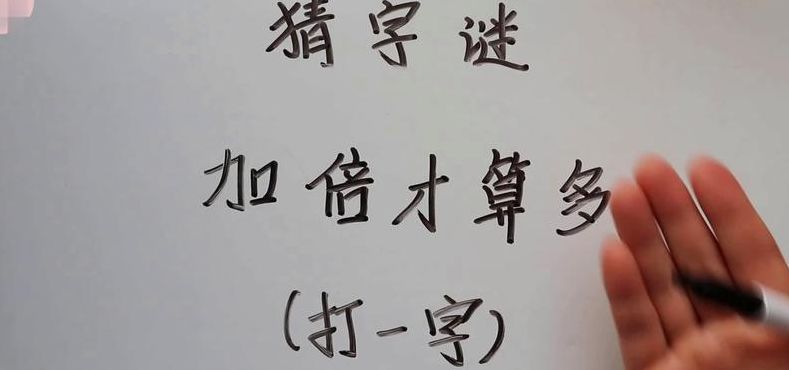 猜字谜
加倍才算多
(打一字)